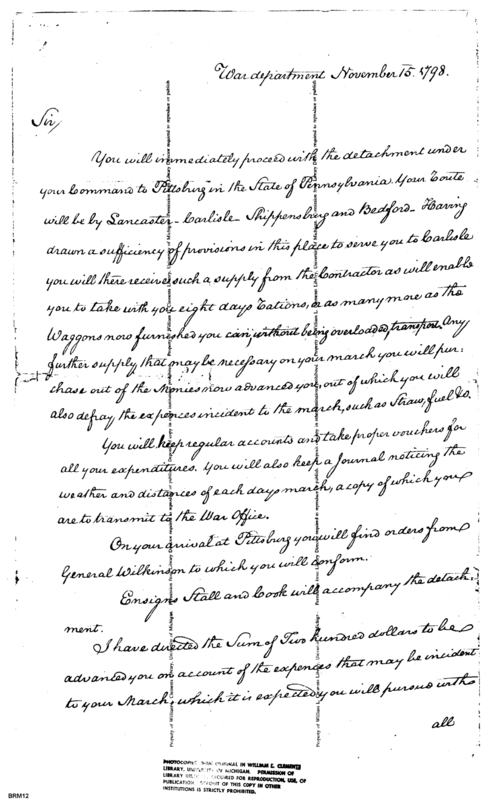 War department November 15. 1798.
Sir,
You will immediately proceed with the detachment under
your Command to Pittsburg in the State of Pennsylvania. Your Route
will be by Lancaster - Carlisle - Shippensburg and Bedford - Having
drawn a sufficiency of provisions in this place to serve you to Carlisle
you will there receive such a supply from the Contractor as will enable
you to take with you eight days Rations, or as many more as the
Waggons now furnished you can, without being overloaded, transport. Any
further supply that may be necessary on your march you will pur:
chase out of the Monies now advanced you, out of which you will
also defray the expences incident to the march, such as Straw, fuel &c.
You will keep regular accounts and take proper vouchers for
all your expenditures. You will also keep a Journal noticing the
weather and distances of each days march, a copy of which you
are to transmit to the War Office.
On your arrival at Pittsburg you will find orders from
General Wilkinson to which you will conform.
Ensigns Stall and Cook will accompany the detach:
ment.
I have directed the Sum of Two hundred dollars to be
advanced you on account of the expences that may be incident
to your March, which it is expected you will pursue with
all
PHOTOCOPIED FROM ORIGINAL IN WILLIAM L. CLEMENTS
LIBRARY, UNIVERSITY OF MICHIGAN. PERMISSION OF
LIBRARY REQUIRED FOR REPRODUCTION, USE, OF
PUBLICATION. DEPOSIT OF THIS COPY IN OTHER
INSTITUTIONS IS STRICTLY PROHIBITED.
BRM12